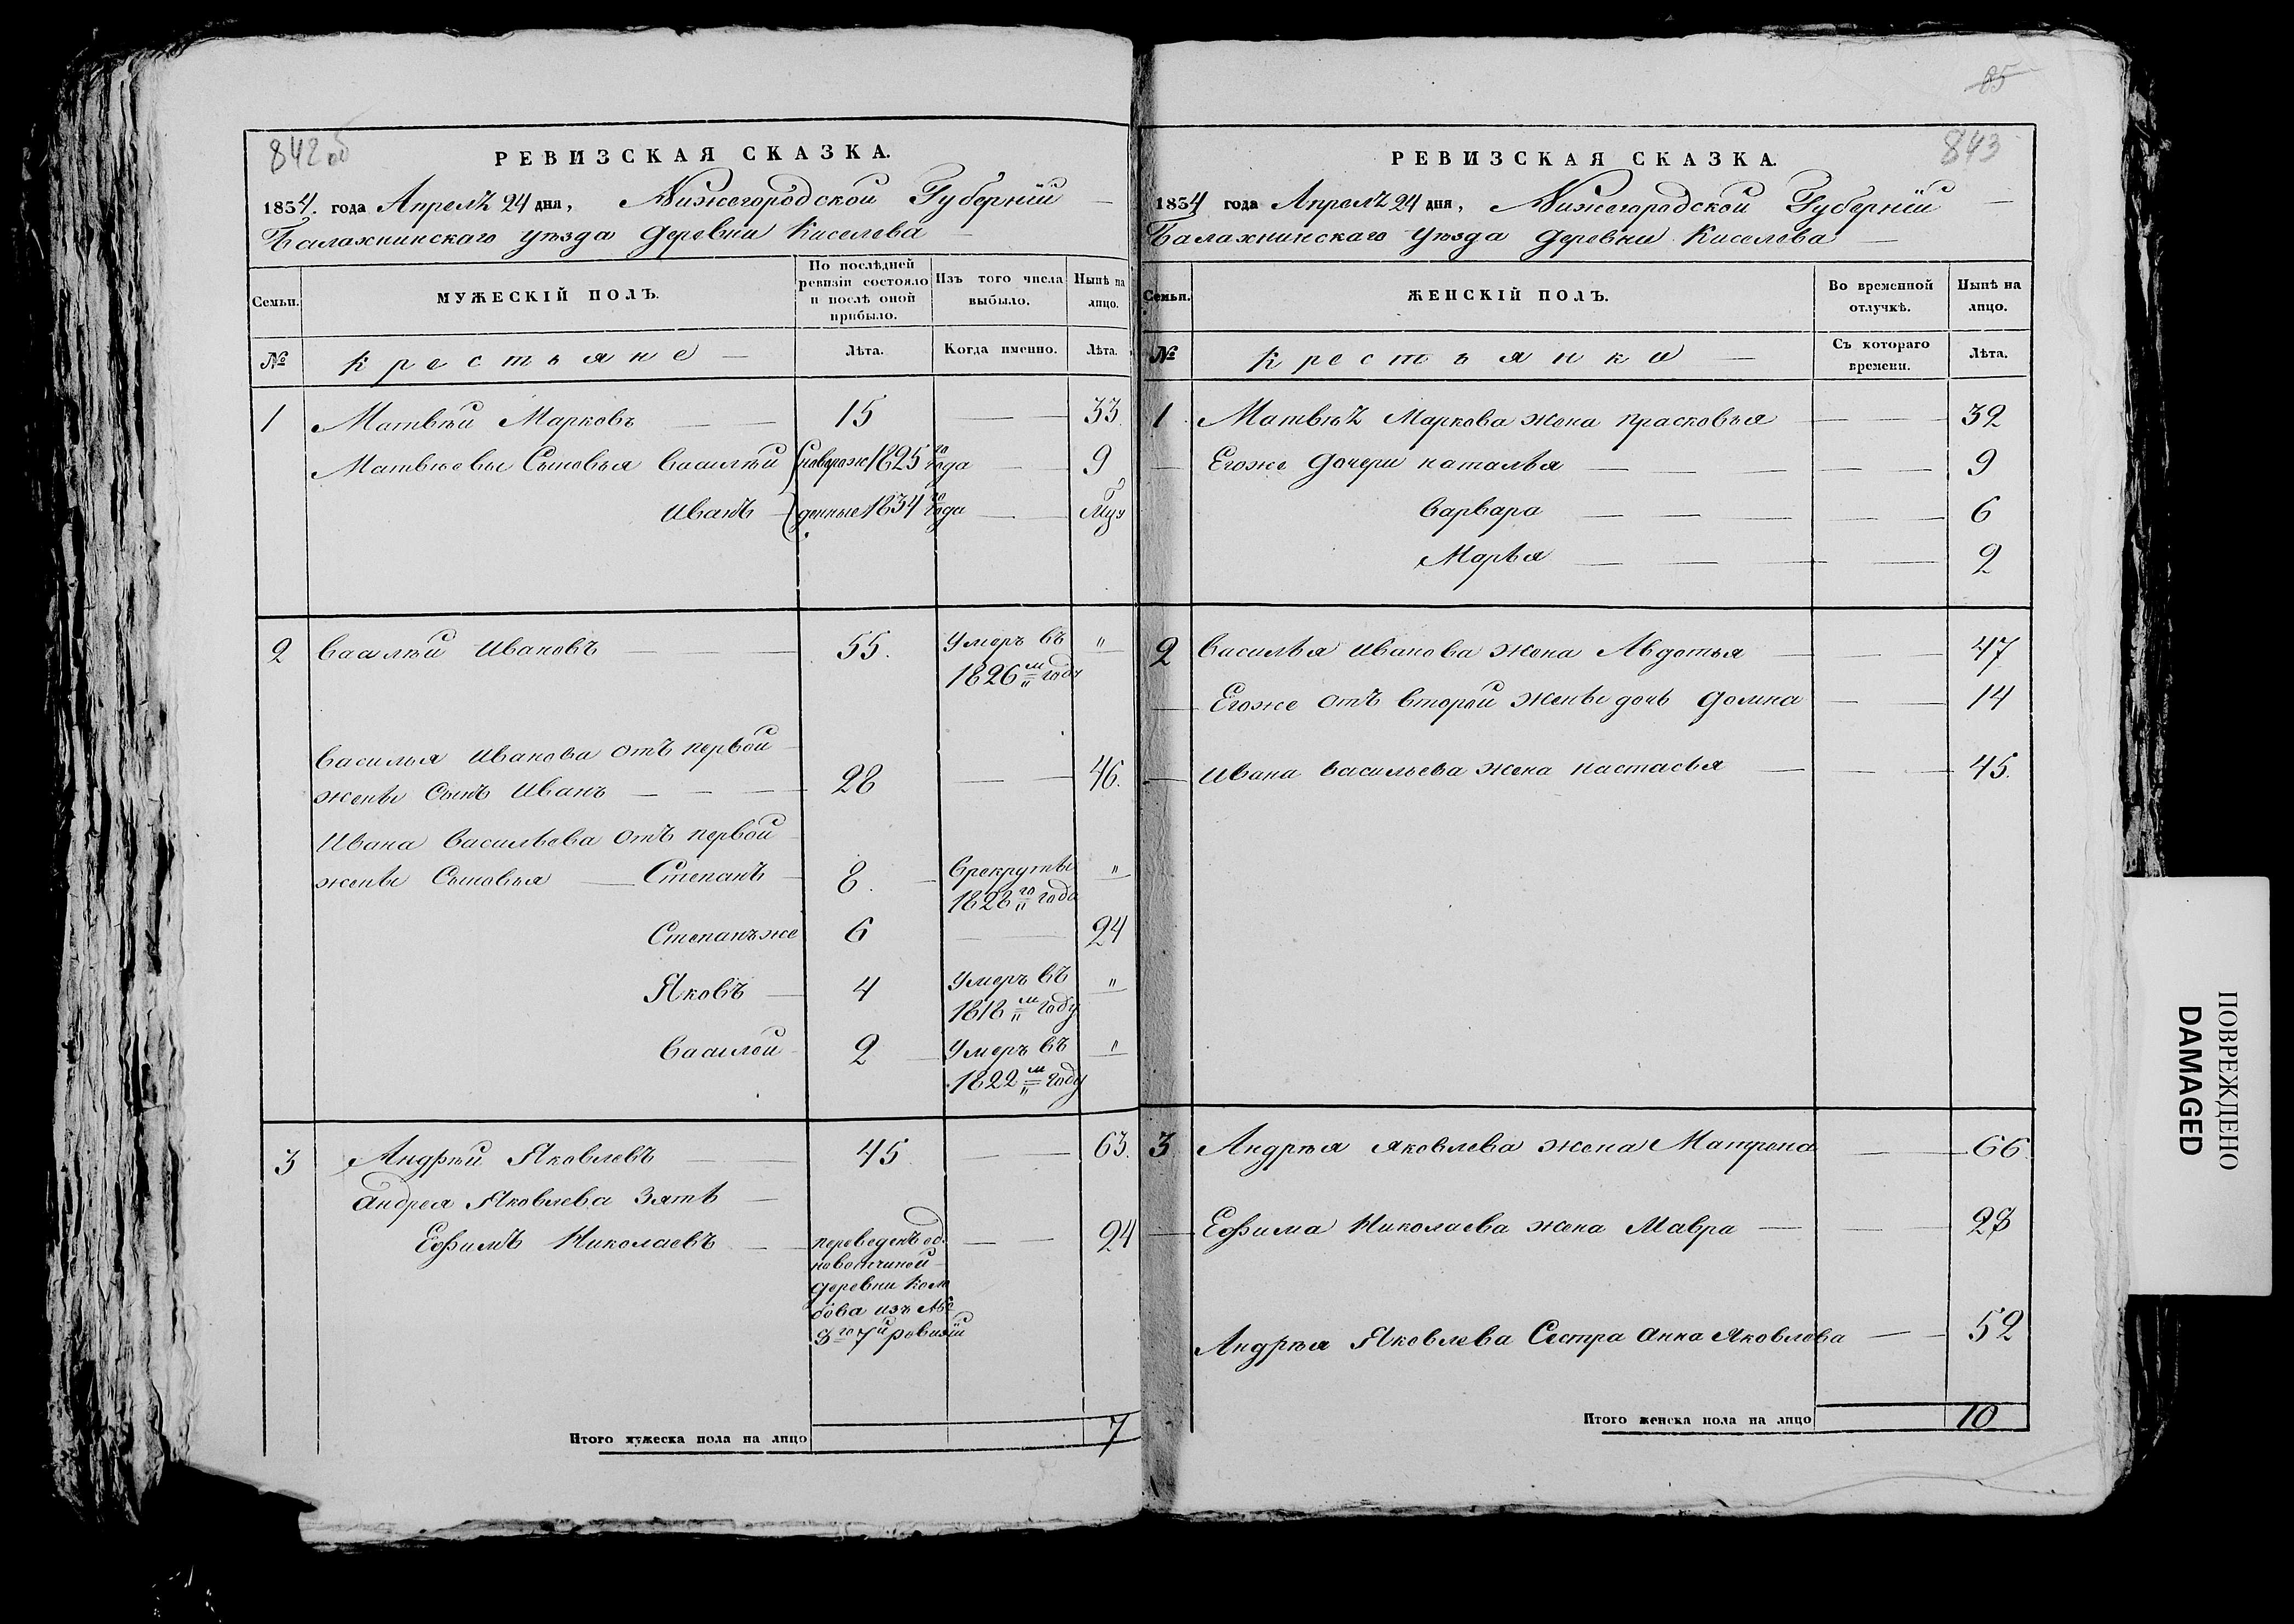 85
842 об
РЕВИЗСКАЯ СКАЗКА.
1834. года Апрелъ 24 дня, Нижегородской Губернїи
Балахнинскаго уѣзда деревни Киселева
Семьи.
МУЖЕСКІЙ ПОЛЪ.
По послѣдней ревизіи состояло и послѣ оной прибыло.
Изъ того числа выбыло.
Нынѣ на лицо.
№
крестьяне
Лѣта.
Когда именно.
Лѣта.
1 Матвѣй Марковъ 15 33.
Матвѣевы Сыновья Василѣй новорож 1825го года 9
Иванъ денные 1834го года
2 Василѣй Ивановъ 55. Умеръ въ "
1826м году
Василья Иванова отъ первой
жены Сынъ Иванъ 28 46.
Ивана Васильева отъ первой
жены Сыновья Степанъ 8. Врекруты "
1828го года
Степанъже 6 24
Яковъ 4 Умеръ въ "
1818м году
Василей 2 Умеръ въ "
1822м году
3 Андрѣй Яковлевъ 45 63.
Андрея Яковлева Зять
Ефимъ Николаевъ переведенъ од. 24
новотчиной
деревни
изъ №
3го 7й ревизїи
Итого мужеска пола на лицо 7
843
РЕВИЗСКАЯ СКАЗКА.
1834 года Апрелъ 24 дня, Нижегородской Губернїи
Балахнинскаго Уѣзда деревни Киселева
Семьи.
ЖЕНСКІЙ ПОЛЪ.
Во временной отлучкѣ.
Нынѣ на лицо.
№
крестьянки
Съ котораго времени.
Лѣта.
1 Матвѣя Маркова жена Прасковья 32
Егоже дочери Наталья 9
Варвара 6
Марья 2
2 Василья Иванова жена Авдотья 47
Егоже отъ второй жены дочь Домна 14
Ивана Васильева жена Настасья 45.
3 Андрѣя Яковлева жена Матрена 66.
Ефима Николаева жена Мавра 23
Андрѣя Яковлева Сестра Анна Яковлева 52
Итого женска пола на лицо 10
ПОВРЕЖДЕНО
DAMAGED